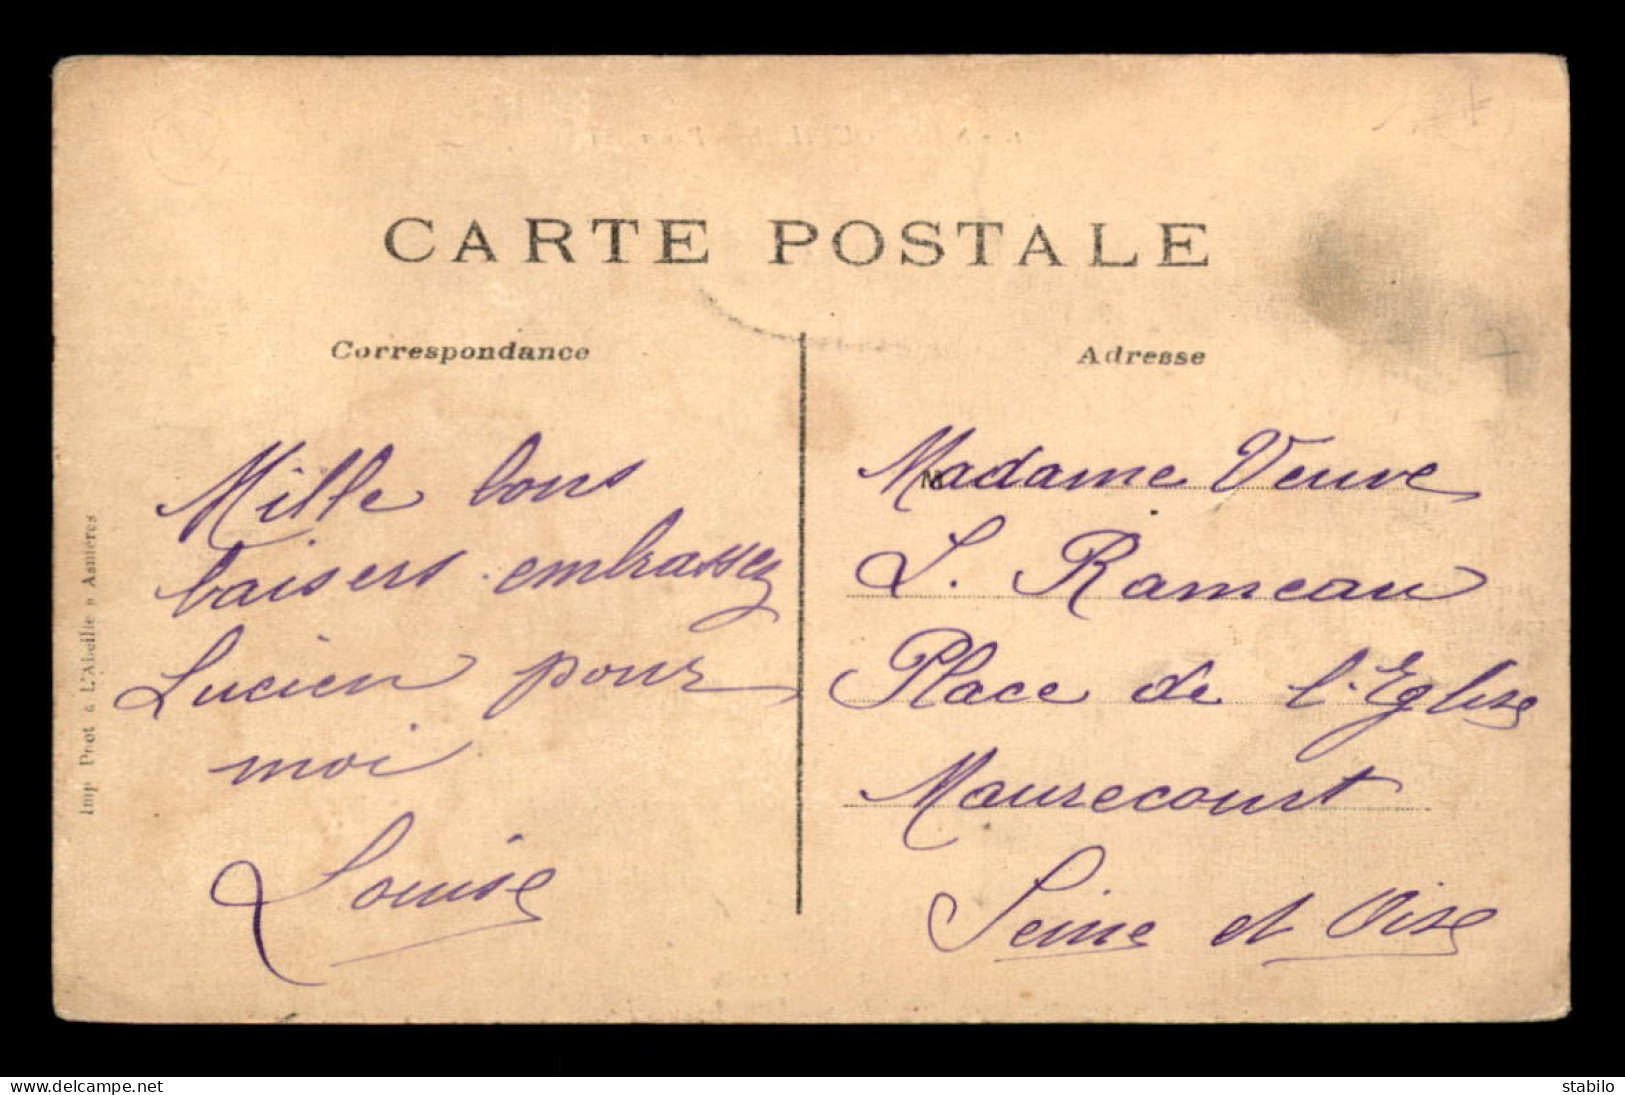 CARTE POSTALE
Correspondance
Mille bons
baisers embrassez
Lucien pour
moi
Louise
Adresse
M
Madame Veuve
L. Rameau
Place de l'Eglise
Maurecourt
Seine et Oise
Imp Phot « L'Abeille » Asnières
www.delcampe.net
stabilo